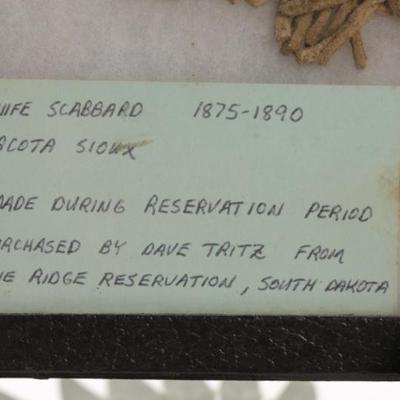 NIFE SCABBARD 1875-1890
ACOTA SIOUX
MADE DURING RESERVATION PERIOD
URCHASED BY DAVE TRITZ FROM
NE RIDGE RESERVATION, SOUTH DAKOTA